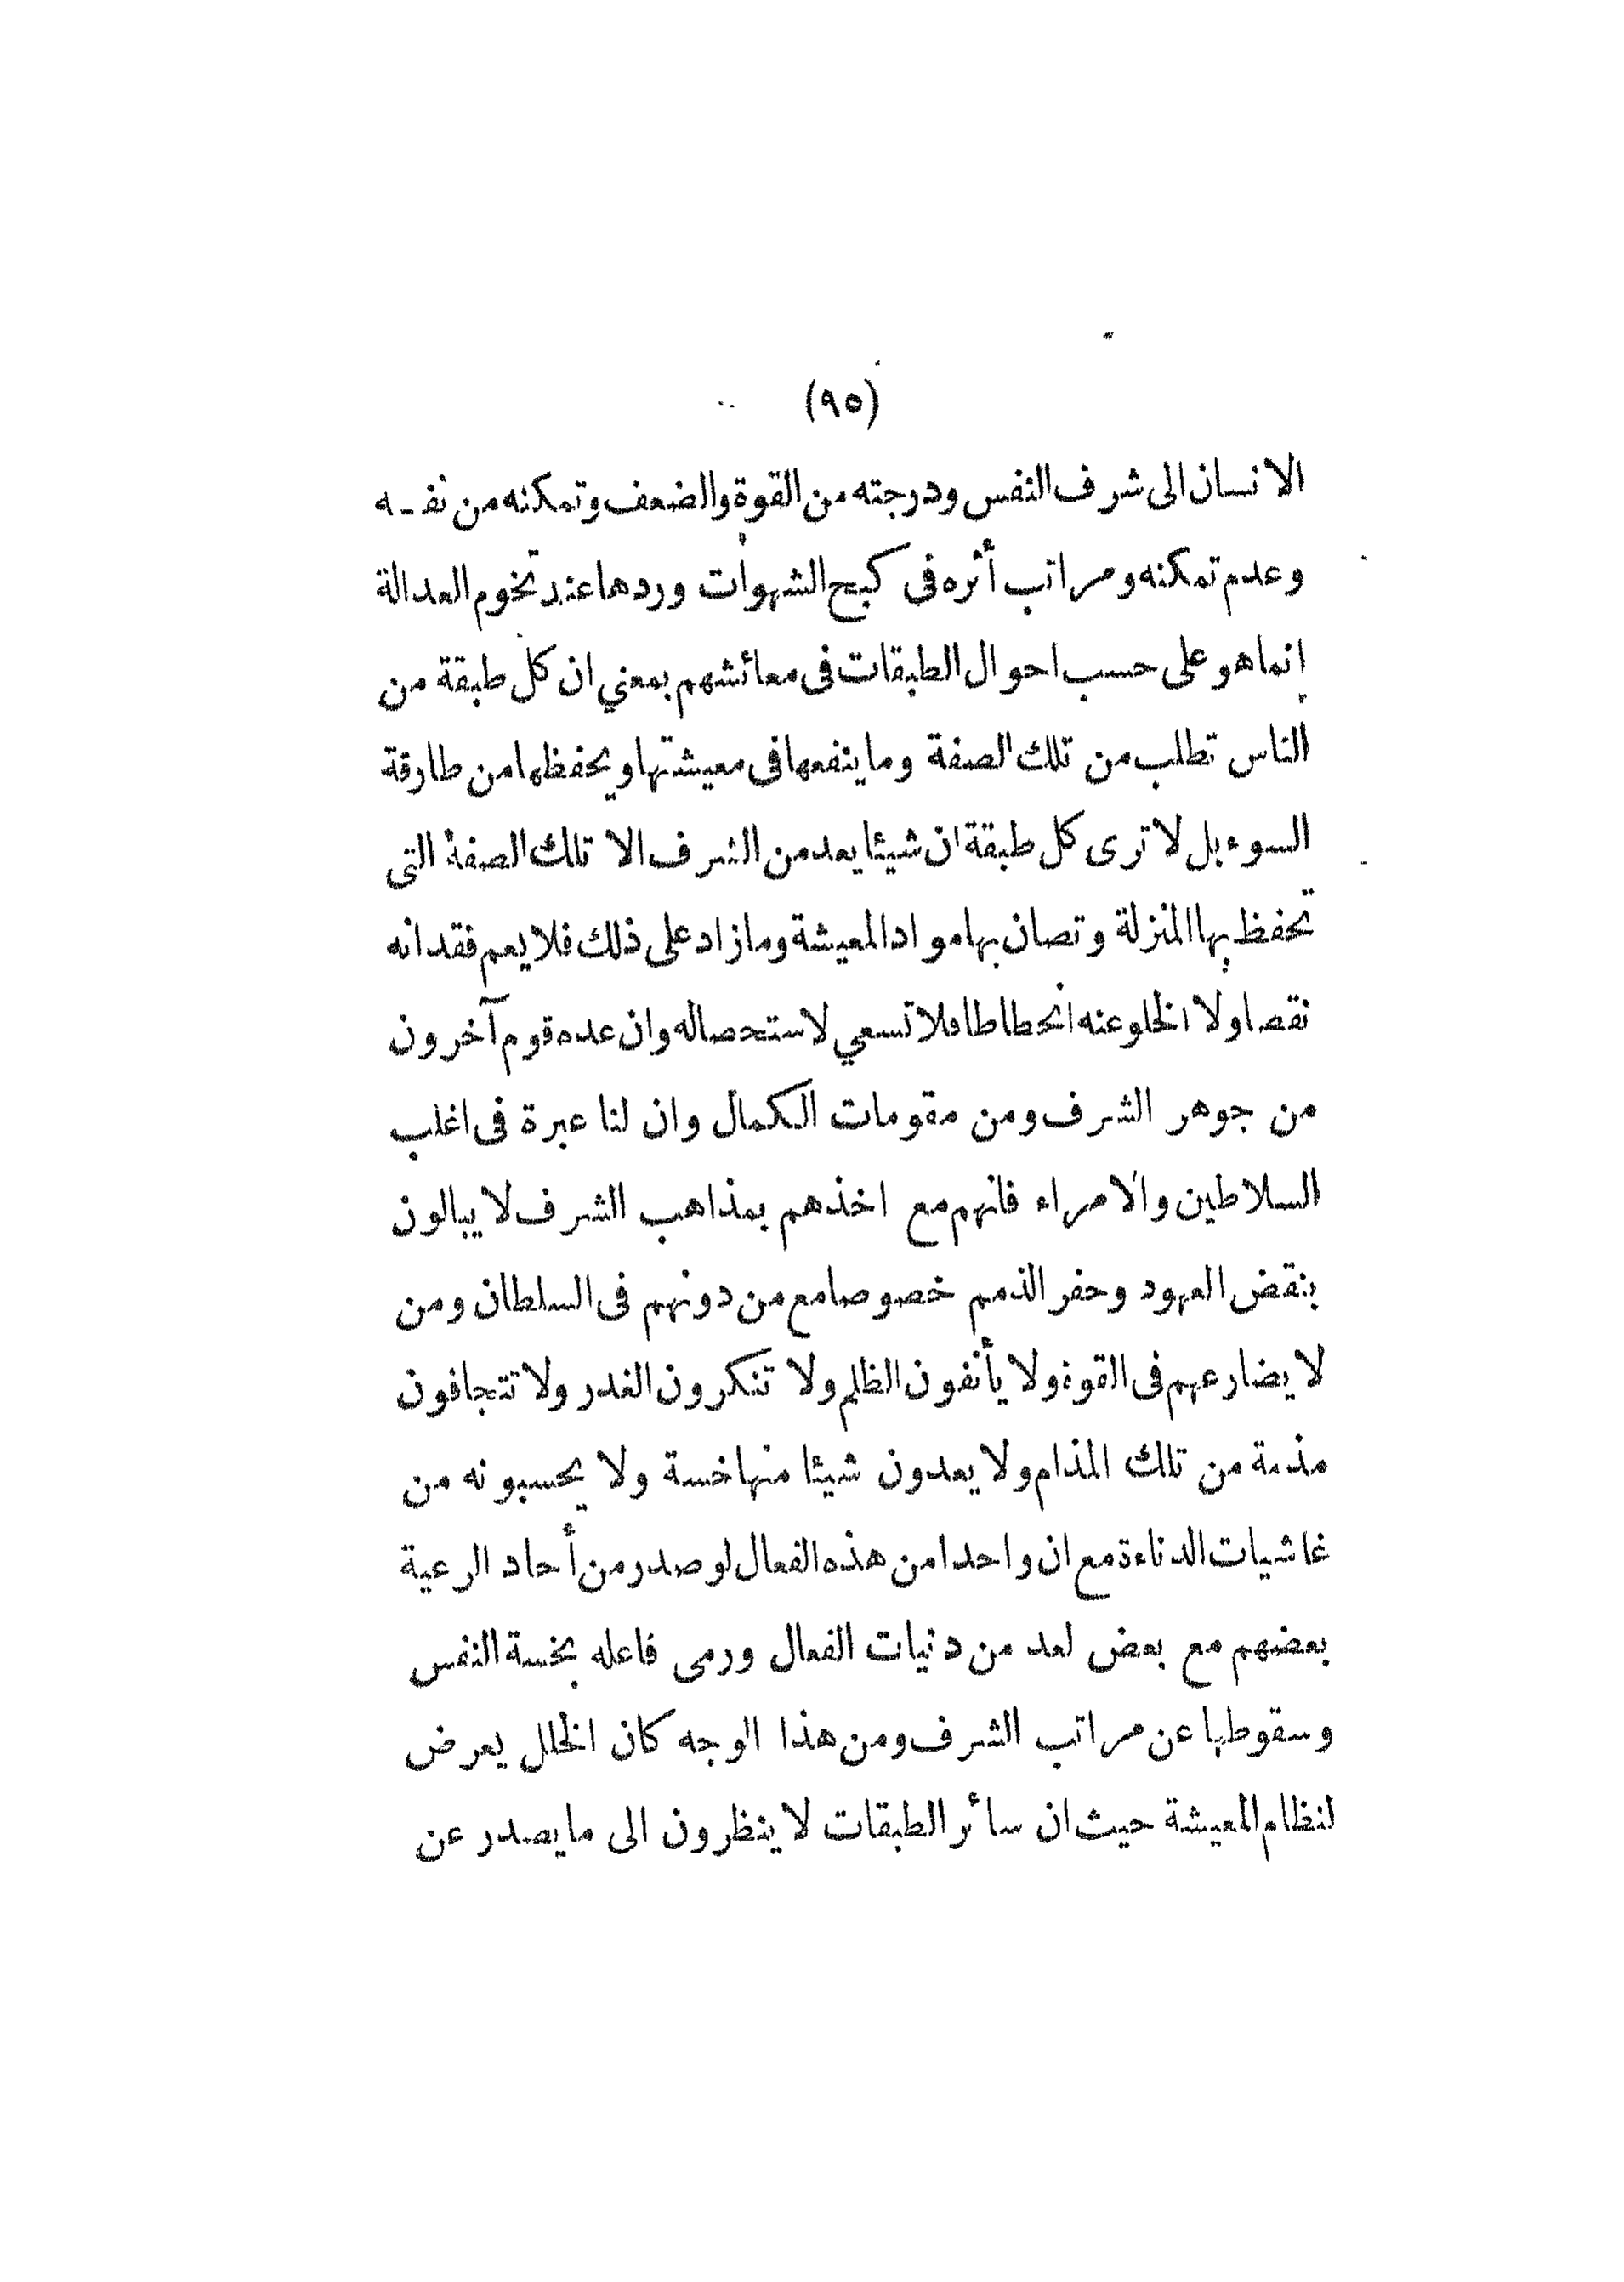 (٩٥)
الانسان الى شرف النفس ودرجته من القوة والضعف وتمكنه من نفسه
وعدم تمكنه ومراتب أثره فى كبح الشهوات وردها عند تخوم العدالة
إنما هو على حسب احوال الطبقات فى معائشهم بمعني ان كل طبقة من
الناس تطلب من تلك الصفة وما ينفعها فى معيشتها ويحفظها من طارقة
السوء بل لا ترى كل طبقة ان شيئا يعد من الشرف الا تلك الصفة التى
تحفظ بها المنزلة وتصان بها مواد المعيشة وما زاد على ذلك فلا يعم فقدانه
نقصا ولا الخلو عنه انحطاطا فلا تسعي لاستحصاله وان عده قوم آخرون
من جوهر الشرف ومن مقومات الكمال وان لنا عبرة فى اغلب
السلاطين والامراء فانهم مع اخذهم بمذاهب الشرف لا يبالون
بنقض العهود وحفر الذمم خصوصا مع من دونهم فى السلطان ومن
لا يضارعهم فى القوة ولا يأنفون الظلم ولا تنكرون الغدر ولا تتجافون
مذمة من تلك المذام ولا يعدون شيئا منها خسة ولا يحسبونه من
غاشيات الدناءة مع ان واحدا من هذه الفعال لو صدر من أحاد الرعية
بعضهم مع بعض لعد من دنيات الفعال ورمى فاعله بخسة النفس
وسقوطها عن مراتب الشرف ومن هذا الوجه كان الخلل يعرض
لنظام المعيشة حيث ان سائر الطبقات لا ينظرون الى ما يصدر عن